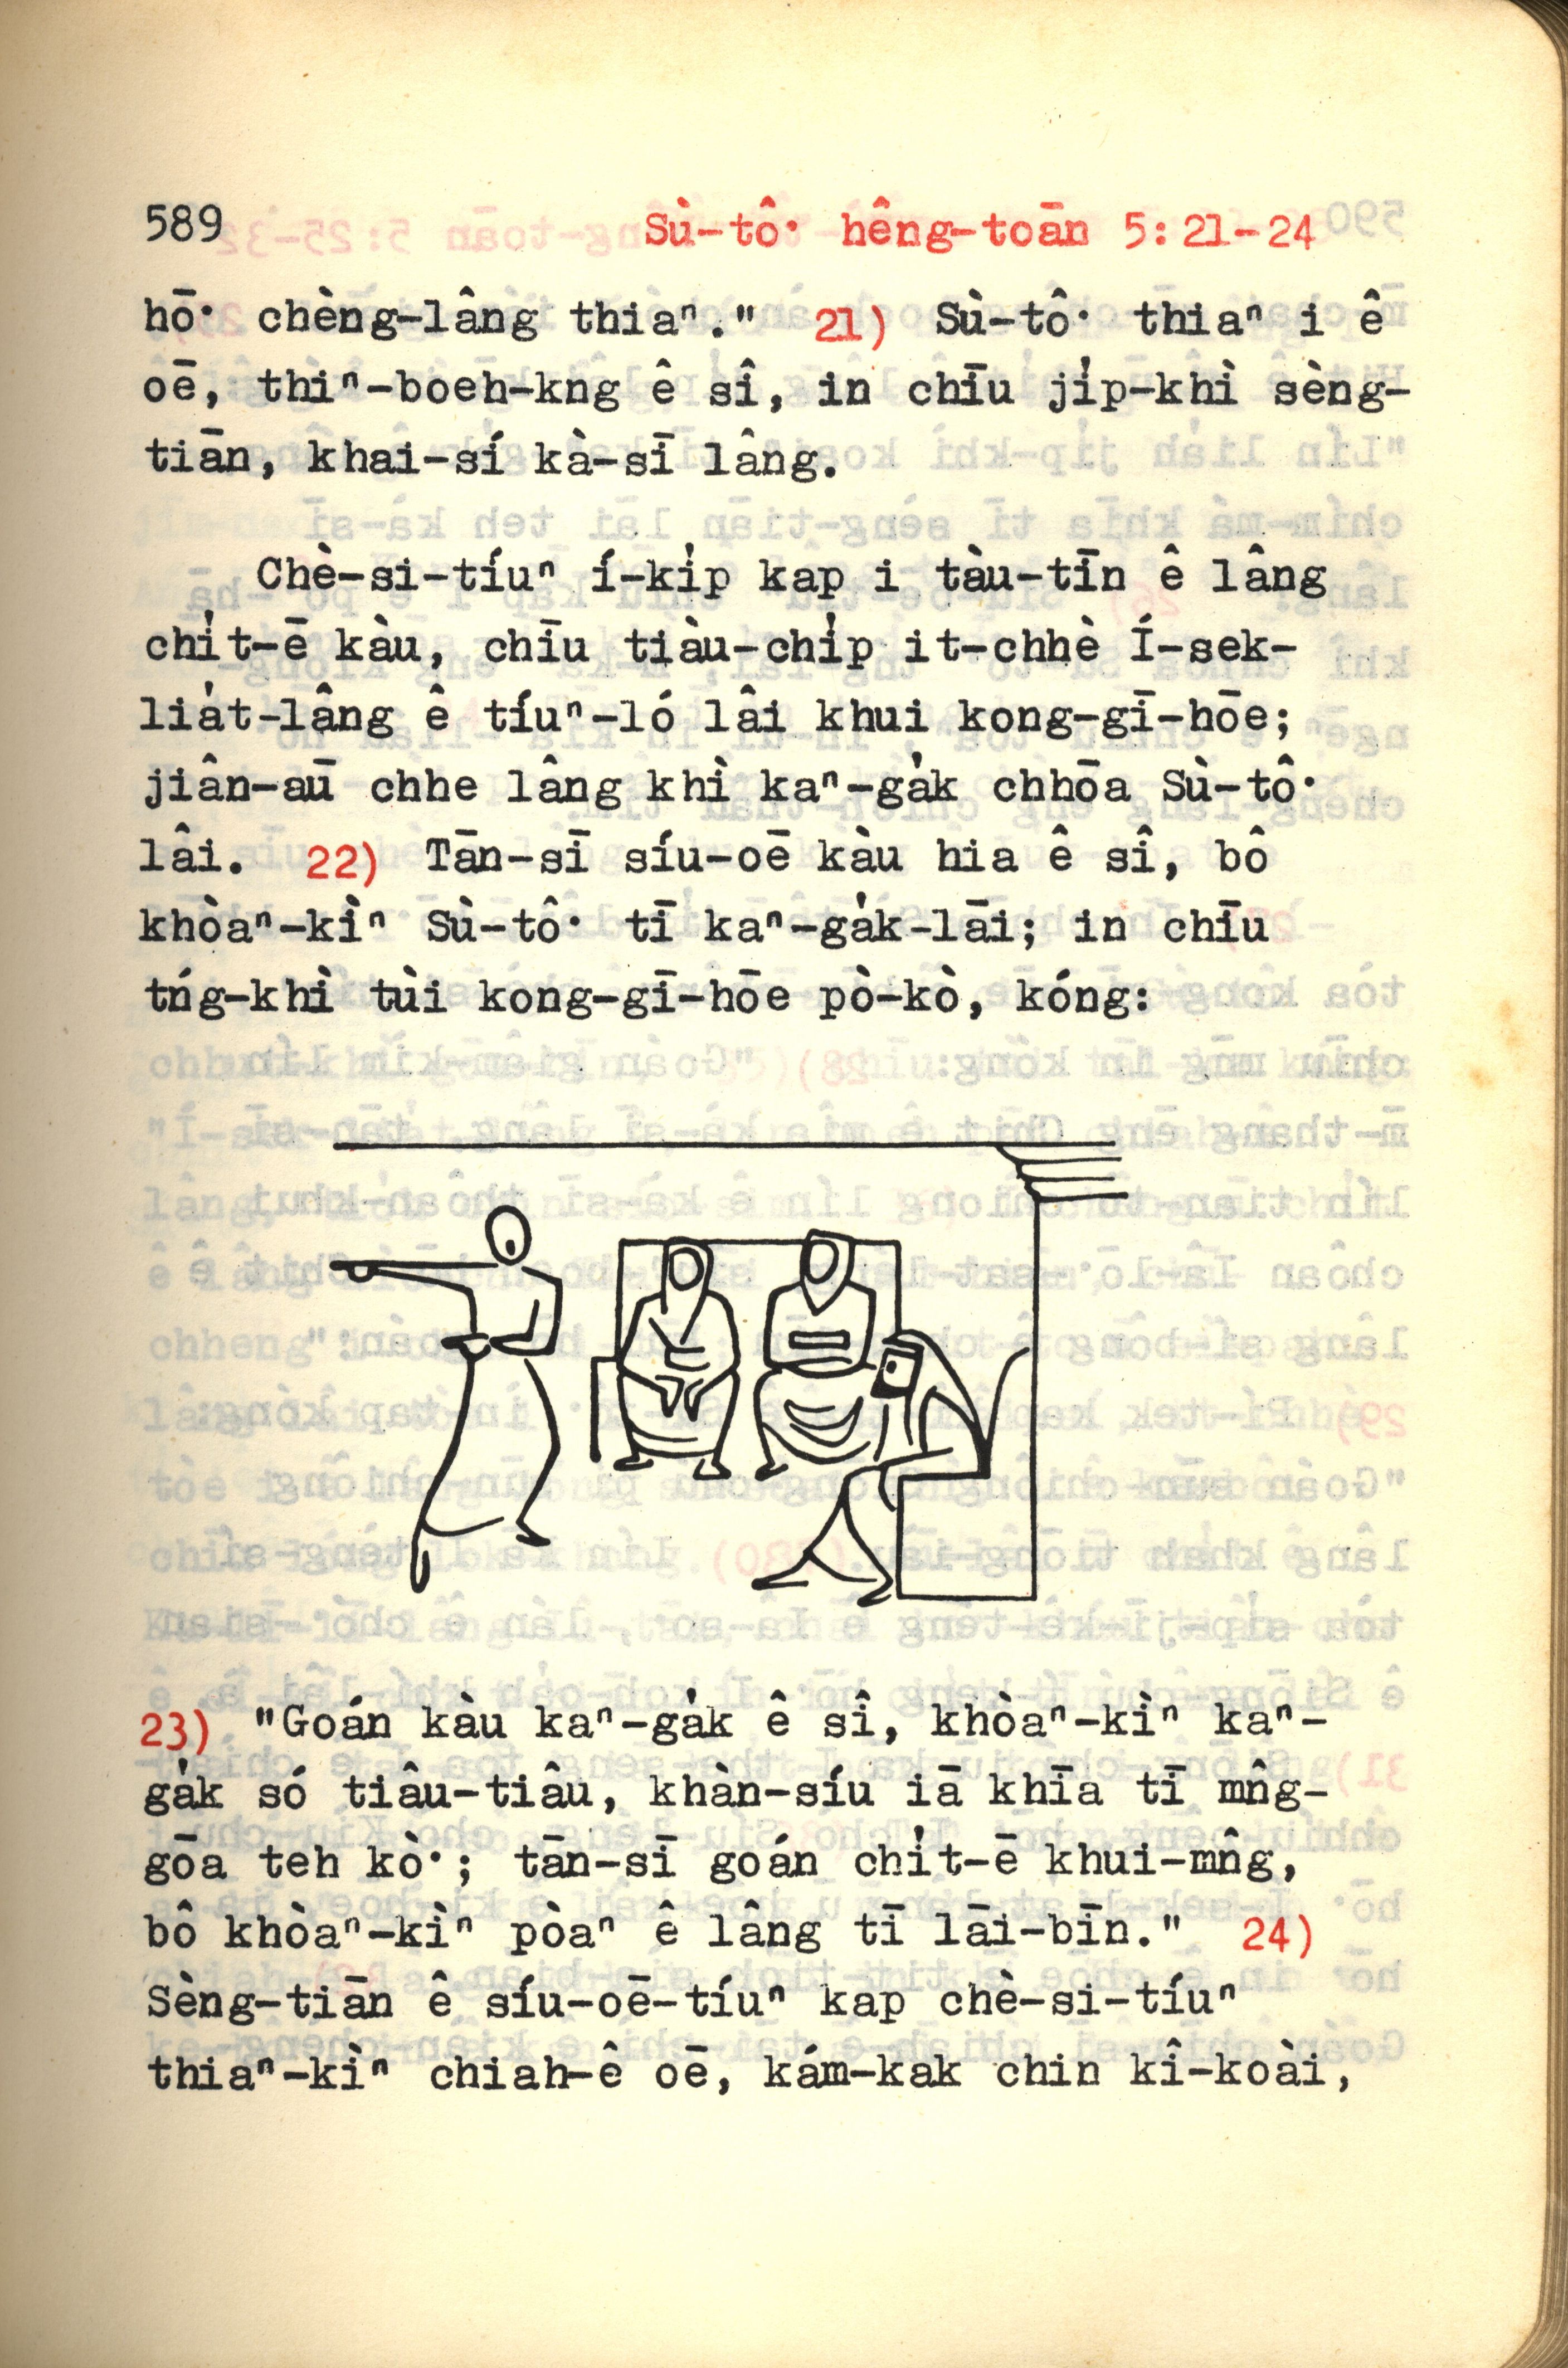 589 Sù-tô͘ hêng-toān 5:21-24
hō͘ chèng-lâng thiaⁿ." 21) Sù-tô͘ thiaⁿ i ê
oē, thiⁿ-boeh-kng ê sî, in chīu ji̍p-khì sèng-
tiān, khai-sí kà-sī lâng.
Chè-si-tíuⁿ í-ki̍p kap i tàu-tīn ê lâng
chi̍t-ē kàu, chīu tiàu-chi̍p it-chhè Í-sek-
lia̍t-lâng ê tíuⁿ-ló lâi khui kong-gī-hōe;
jiân-aū chhe lâng khì kaⁿ-ga̍k chhōa Sù-tô͘
lâi. 22) Tān-sī síu-oē kàu hia ê sî, bô
khòaⁿ-kìⁿ Sù-tô͘ tī kaⁿ-ga̍k-lāi; in chīu
tńg-khì tùi kong-gī-hōe pò-kò, kóng:
23) "Goán kàu kaⁿ-ga̍k ê sî, khòaⁿ-kìⁿ kaⁿ-
ga̍k só tiâu-tiâu, khàn-síu iā khīa tī mn̂g-
gōa teh kò͘; tān-sī goán chi̍t-ē khui-mn̂g,
bô khòaⁿ-kìⁿ pòaⁿ ê lâng tī lāi-bīn." 24)
Sèng-tiān ê síu-oē-tíuⁿ kap chè-si-tíuⁿ
thiaⁿ-kìⁿ chiah-ê oē, kám-kak chin kî-koài,